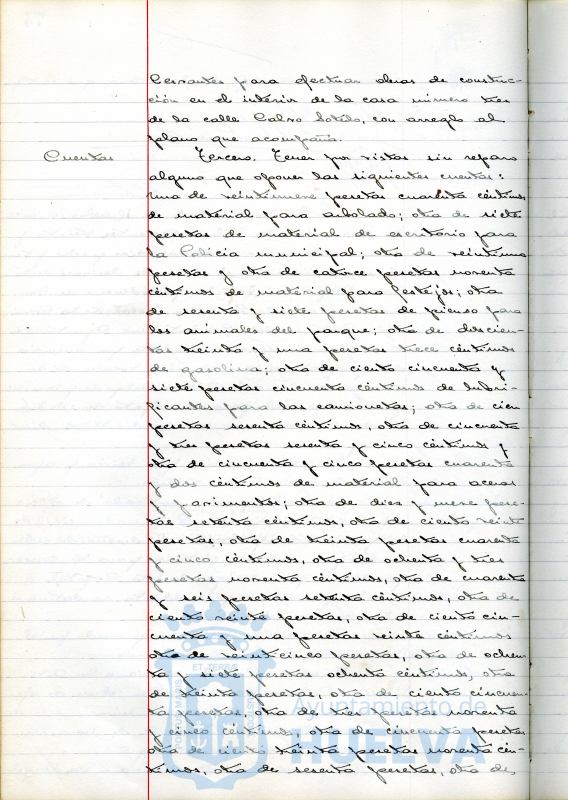 Cervantes para efectuar obras de construc-
ción en el interior de la casa número tres
de la calle Calvo Sotelo, con arreglo al
plano que acompaña.
Cuentas
Tercero. Tener por vistas sin reparo
alguno que oponer las siguientes cuentas:
una de veintinueve pesetas cuarenta céntimos
de material para arbolado; otra de siete
pesetas de material de escritorio para
la Policía municipal; otra de veintiuna
pesetas y otra de catorce pesetas noventa
céntimos de material para festejos; otra
de sesenta y siete pesetas de pienso para
los animales del parque; otra de doscien-
tas treinta y una pesetas trece céntimos
de gasolina; otra de ciento cincuenta y
siete pesetas cincuenta céntimos de lubri-
ficantes para las camionetas; otra de cien
pesetas sesenta céntimos, otra de cincuenta
y tres pesetas sesenta y cinco céntimos y
otra de cincuenta y cinco pesetas cuarenta
y dos céntimos de material para aceras
y pavimentos; otra de diez y nueve pese-
tas setenta céntimos, otra de ciento veinte
pesetas, otra de treinta pesetas cuarenta
y cinco céntimos, otra de ochenta y tres
pesetas noventa céntimos, otra de cuarenta
y seis pesetas setenta céntimos, otra de
ciento veinte pesetas, otra de ciento cin-
cuenta y una pesetas veinte céntimos
otra de veinticinco pesetas, otra de ochen-
ta y siete pesetas ochenta céntimos, otra
de treinta pesetas, otra de ciento cincuen-
ta pesetas, otra de pesetas noventa
y cinco céntimos, otra de cincuenta pesetas
otra de ciento treinta pesetas noventa cén-
timos, otra de sesenta pesetas, otra de
ET TERRÆ
Ayuntamiento de
HUELVA